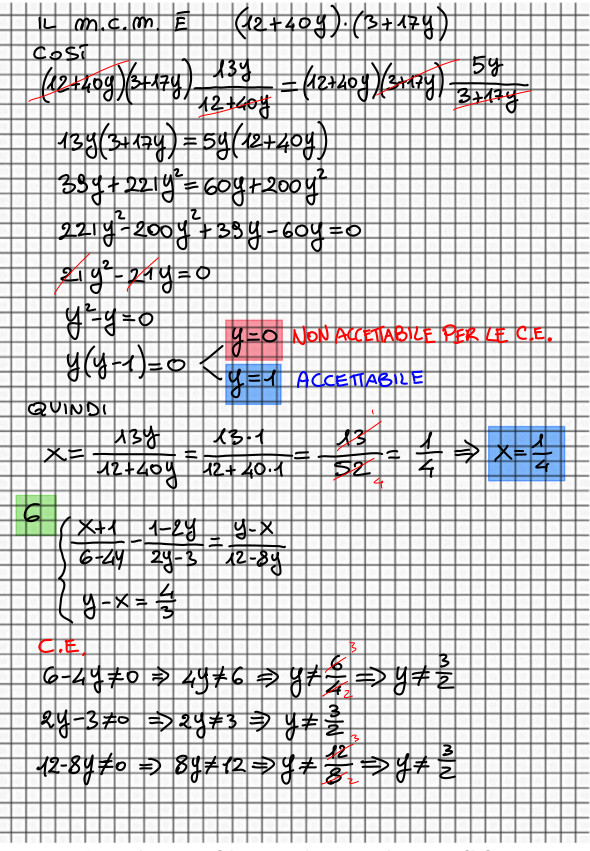 IL m.c.m. È (12+40y)·(3+17y)
COSÌ
(12+40y)(3+17y) 13y/(12+40y) = (12+40y)(3+17y) 5y/(3+17y)
13y(3+17y)=5y(12+40y)
39y+221y²=60y+200y²
221y²-200y²+39y-60y=0
21y²-21y=0
y²-y=0
y=0 NON ACCETTABILE PER LE C.E.
y(y-1)=0 <
y=1 ACCETTABILE
QUINDI
x= 13y/(12+40y) = 13·1/(12+40·1) = 13/52 = 1/4 ⇒ x=1/4
1
4
6
{ (x+1)/(6-4y) - (1-2y)/(2y-3) = (y-x)/(12-8y)
y-x=4/3
C.E.
6-4y≠0 ⇒ 4y≠6 ⇒ y≠6/4 3 2 ⇒ y≠3/2
2y-3≠0 ⇒ 2y≠3 ⇒ y≠3/2
12-8y≠0 ⇒ 8y≠12 ⇒ y≠12/8 3 2 ⇒ y≠3/2